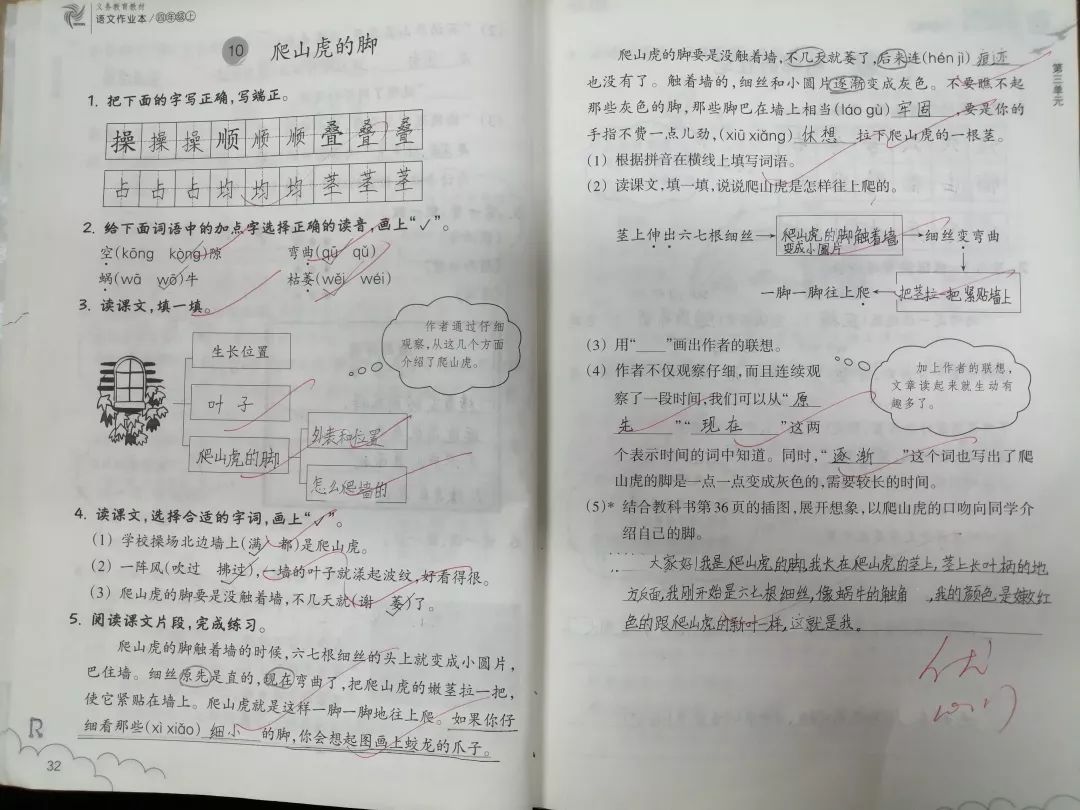 义务教育教材
语文作业本/四年级上
10 爬山虎的脚
1. 把下面的字写正确,写端正。
操 操 操 顺 顺 顺 叠 叠 叠
占 占 占 均 均 均 茎 茎 茎
2. 给下面词语中的加点字选择正确的读音,画上“✓”。
空(kōng kòng)隙 弯曲(qū qǔ)
蜗(wā wō)牛 枯萎(wěi wéi)
3. 读课文,填一填。
作者通过仔细
观察,从这几个方面
介绍了爬山虎。
生长位置
叶子
爬山虎的脚
外表和位置
怎么爬墙的
4. 读课文,选择合适的字词,画上“✓”。
(1) 学校操场北边墙上(满 都)是爬山虎。
(2) 一阵风(吹过 拂过),一墙的叶子就漾起波纹,好看得很。
(3) 爬山虎的脚要是没触着墙,不几天就(谢 萎)了。
5. 阅读课文片段,完成练习。
爬山虎的脚触着墙的时候,六七根细丝的头上就变成小圆片,
巴住墙。细丝原先是直的,现在弯曲了,把爬山虎的嫩茎拉一把,
使它紧贴在墙上。爬山虎就是这样一脚一脚地往上爬。如果你仔
细看那些(xì xiǎo) 细小 的脚,你会想起图画上蛟龙的爪子。
32
爬山虎的脚要是没触着墙,不几天就萎了,后来连(hén jì) 痕迹
也没有了。触着墙的,细丝和小圆片逐渐变成灰色。不要瞧不起
那些灰色的脚,那些脚巴在墙上相当(láo gù) 牢固 ,要是你的
手指不费一点儿劲,(xiū xiǎng) 休想 拉下爬山虎的一根茎。
(1) 根据拼音在横线上填写词语。
(2) 读课文,填一填,说说爬山虎是怎样往上爬的。
茎上伸出六七根细丝→爬山虎的脚触着墙→细丝变弯曲
变成小圆片
一脚一脚往上爬←把茎拉一把紧贴墙上
(3) 用“__”画出作者的联想。
(4) 作者不仅观察仔细,而且连续观
察了一段时间,我们可以从“ 原
先 ”“ 现在 ”这两
个表示时间的词中知道。同时,“ 逐渐 ”这个词也写出了爬
山虎的脚是一点一点变成灰色的,需要较长的时间。
加上作者的联想,
文章读起来就生动有
趣多了。
(5)* 结合教科书第36页的插图,展开想象,以爬山虎的口吻向同学介
绍自己的脚。
大家好!我是爬山虎的脚,我长在爬山虎的茎上,茎上长叶柄的地
方反面,我刚开始是六七根细丝,像蜗牛的触角,我的颜色是嫩红
色的跟爬山虎的新叶一样,这就是我。
优
第三单元